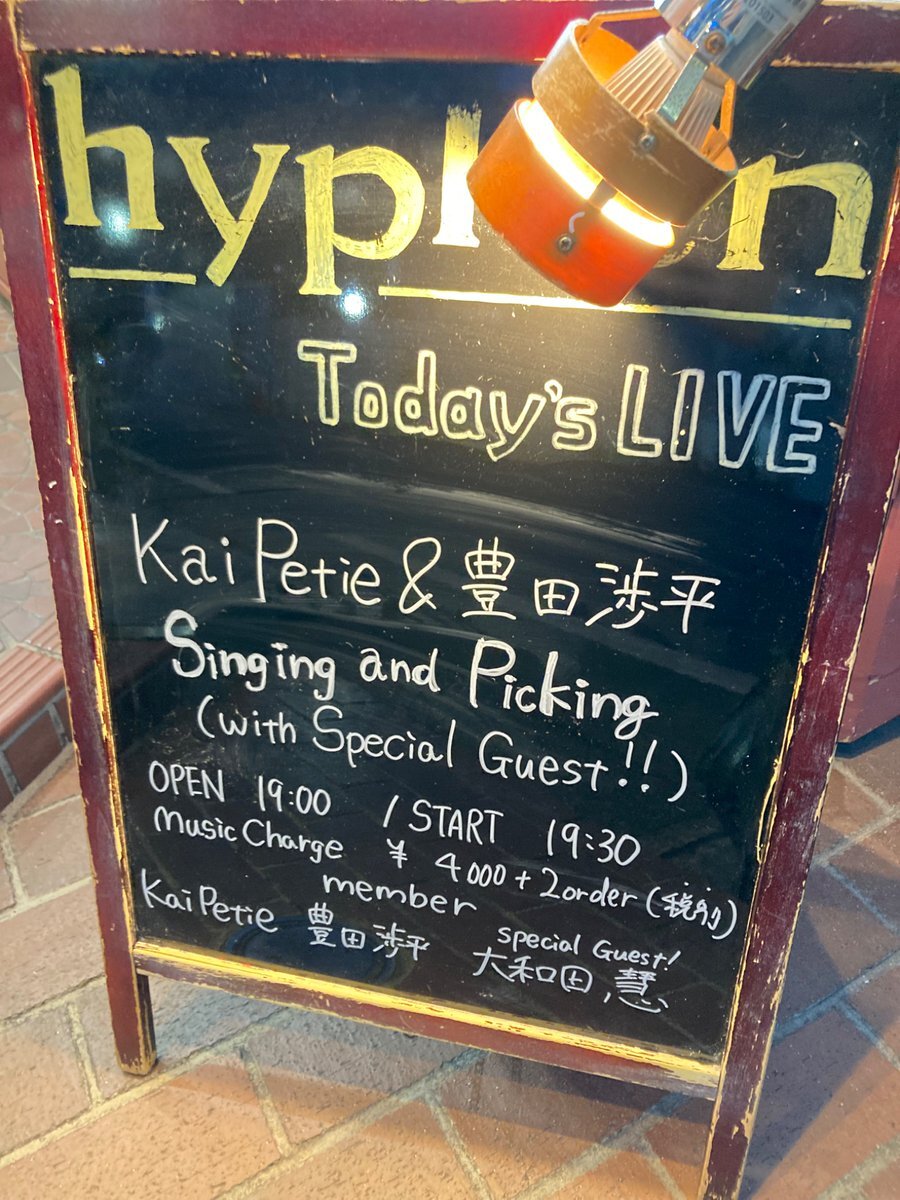 hyphen
Today's LIVE
Kai Petie & 豊田渉平
Singing and Picking
(with Special Guest!!)
OPEN 19:00 / START 19:30
Music Charge ¥4000 + 2order (税別)
member
Special Guest!
Kai Petie 豊田渉平 大和田慧